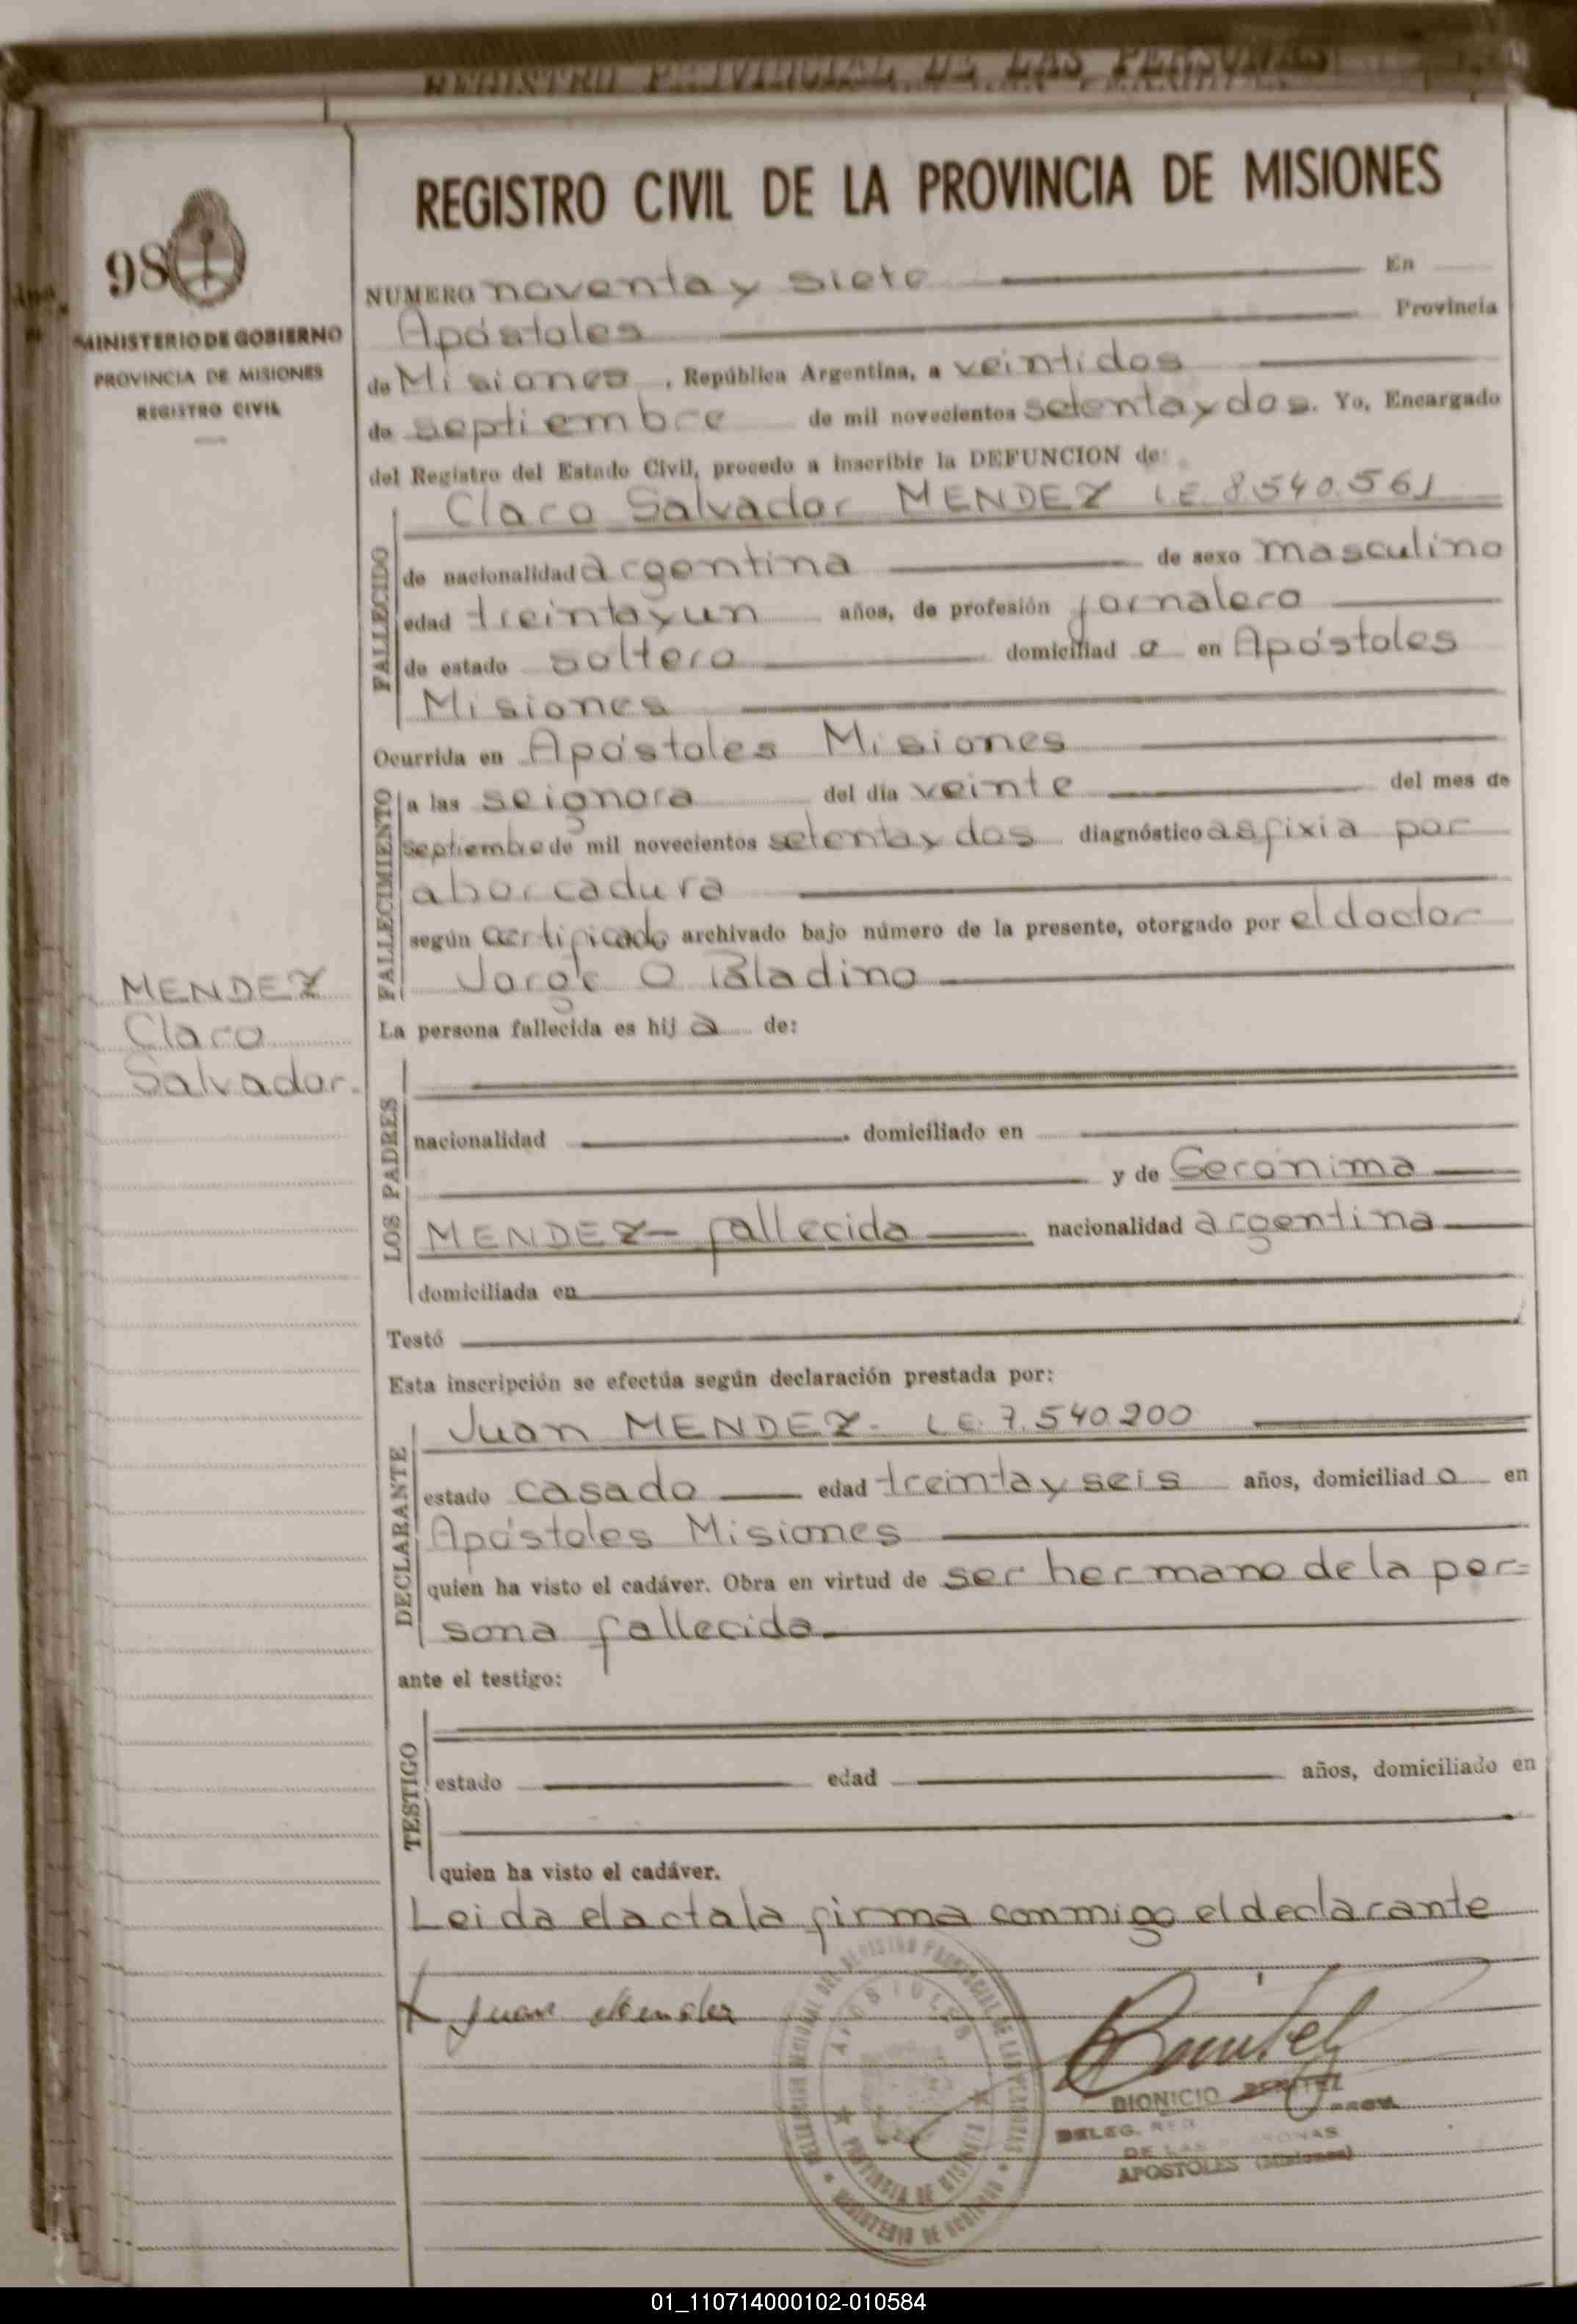 REGISTRO PROVINCIAL DE LAS PERSONAS
REGISTRO CIVIL DE LA PROVINCIA DE MISIONES
98
MINISTERIO DE GOBIERNO
PROVINCIA DE MISIONES
REGISTRO CIVIL
NUMERO noventa y siete En
Apóstoles Provincia
de Misiones, República Argentina, a veintidos
de septiembre de mil novecientos setenta y dos. Yo, Encargado
del Registro del Estado Civil, procedo a inscribir la DEFUNCION de:
Claro Salvador MENDEZ L.E. 8.540.561
FALLECIDO
de nacionalidad argentina de sexo masculino
edad treinta y un años, de profesión jornalero
de estado soltero domiciliad o en Apóstoles
Misiones
Ocurrida en Apóstoles Misiones
FALLECIMIENTO
a las seignora del día veinte del mes de
septiembre de mil novecientos setenta y dos diagnóstico asfixia por
ahorcadura
según certificado archivado bajo número de la presente, otorgado por el doctor
Jorge O Paladino
MENDEZ
Claro
Salvador.
La persona fallecida es hij a de:
LOS PADRES
nacionalidad . domiciliado en
y de Geronima
MENDEZ- fallecida nacionalidad argentina
domiciliada en
Testó
Esta inscripción se efectúa según declaración prestada por:
DECLARANTE
Juan MENDEZ- L.E. 7.540.200
estado casado edad treinta y seis años, domiciliad o en
Apóstoles Misiones
quien ha visto el cadáver. Obra en virtud de ser hermano de la per=
sona fallecida.
ante el testigo:
TESTIGO
estado edad años, domiciliado en
quien ha visto el cadáver.
Leida el acta la firma conmigo el declarante
Juan Mendez
APOSTOLES
PROVINCIA DE MISIONES
MINISTERIO DE GOBIERNO
DIONICIO BENITEZ
DELEG. REG. PROV.
DE LAS PERSONAS
APOSTOLES (Misiones)
01_110714000102-010584